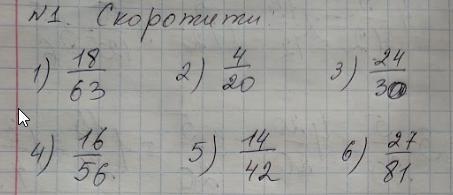 №1. Скоротити
1) 18/63 2) 4/20 3) 24/30
4) 16/56. 5) 14/42 6) 27/81.